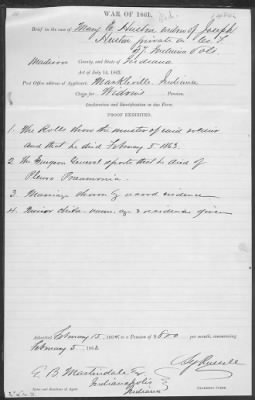 WAR OF 1861.
Brief in the case of Mary E. widow of Joseph
private in Co.
Indiana Vols
Madison County, and State of Indiana
Act of July 14, 1862.
Post Office address of Applicant, Markleville, Indiana
Claim for Widow's Pension.
Declaration and Identification in due Form.
PROOF EXHIBITED.
1. The Rolls show the muster of said
and that he died February 5 1863.
2. The Surgeon General reports that he died of
Pleuro Pneumonia.
3. Marriage shown by record evidence
4. age & residence given
Admitted February 15, to a Pension of $8.00 per month, commencing
February 5, 1863
E. B. Martindale
Indianapolis
Indiana
Name and Residence of Agent.
Examining Clerk.